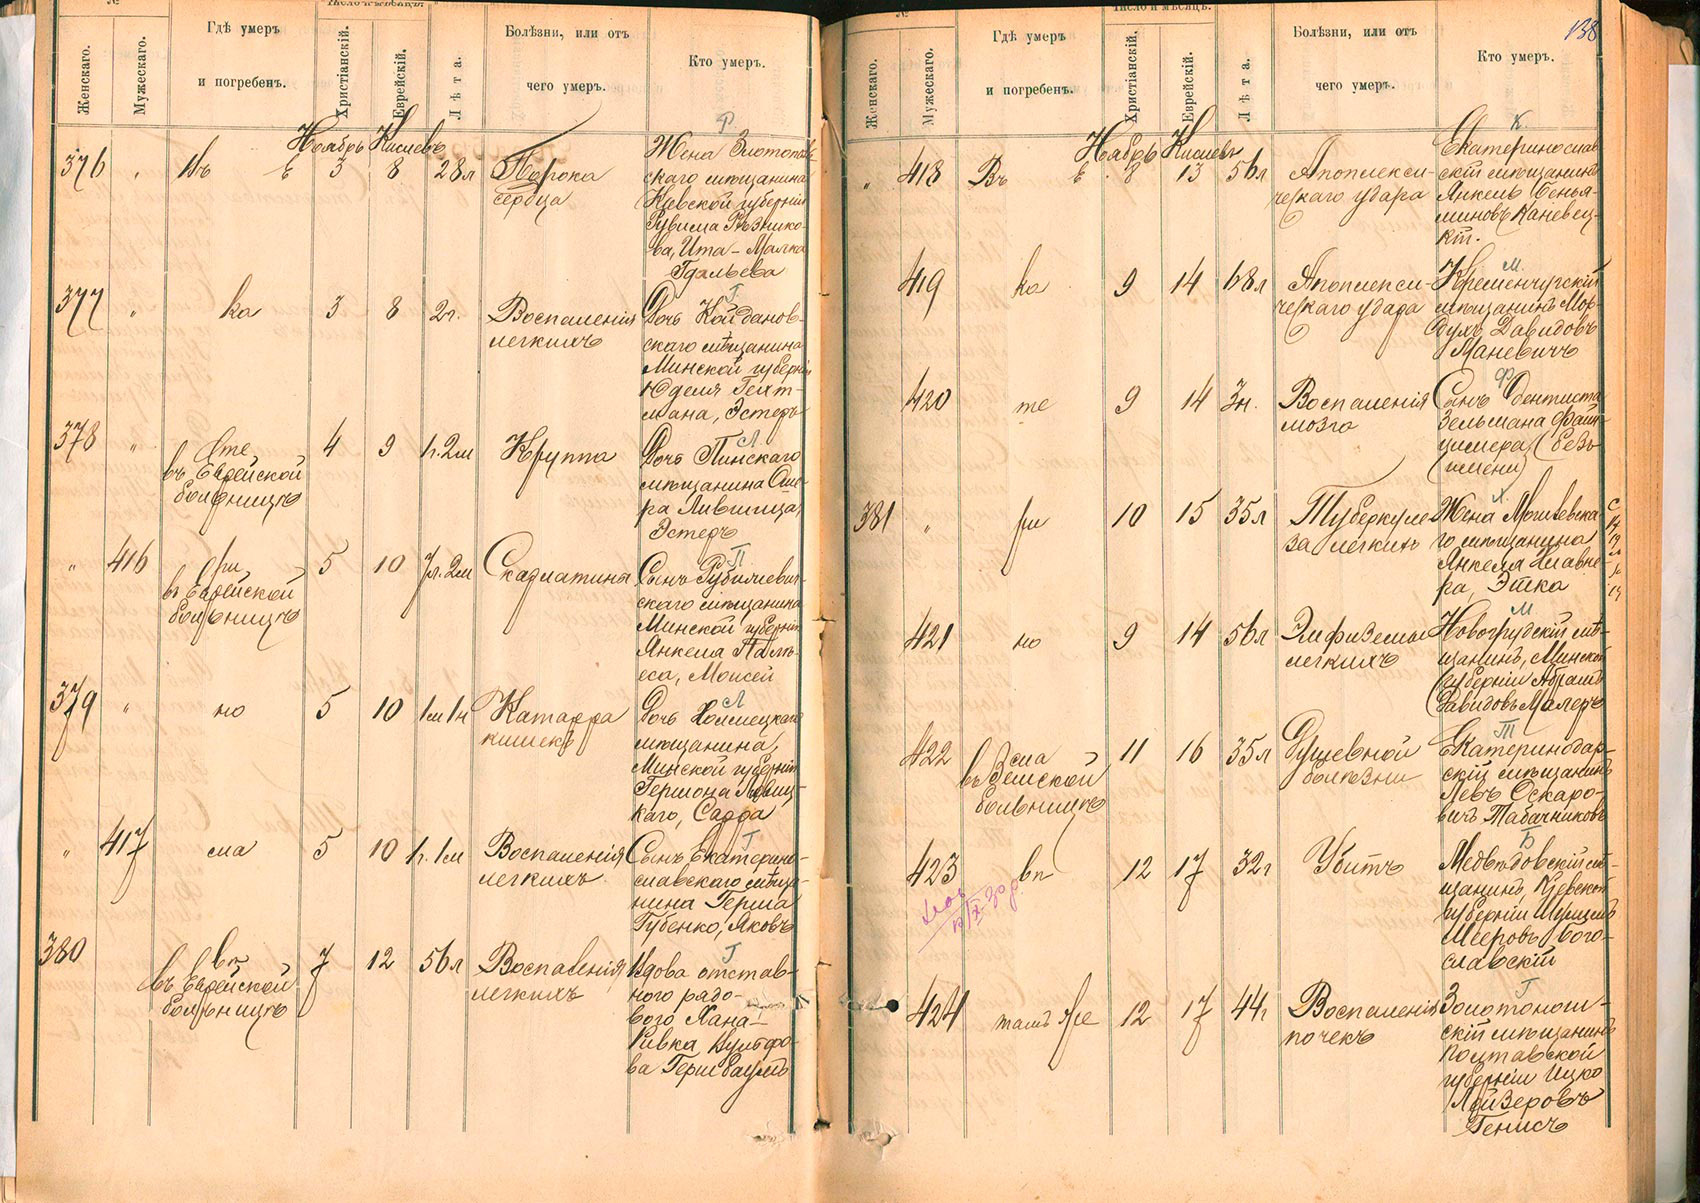 №
Число и мѣсяцъ.
Женскаго.
Мужескаго.
Гдѣ умеръ
и погребенъ.
Христіанскій.
Еврейскій.
Лѣта.
Болѣзни, или отъ
чего умеръ.
Кто умеръ.
Ноябрь Кислевъ
Ф
376 " Въ Е 3 8 28л
Порока
сердца
Жена Златополь
скаго мѣщанина
Кіевской губерніи
Рувима Рѣзнико-
ва, Ита-Малка
Гдальева
Г
377 " ка 3 8 2г.
Воспаленія
легкихъ
Дочь Койданов-
скаго мѣщанина
Минской губерніи
Юделя Гехт-
мана, Эстеръ
Л
378 " Эте
въ Еврейской
больницѣ
4 9 1г.2м Круппа
Дочь Пинскаго
мѣщанина Оше-
ра Лившица,
Эстеръ
П
" 416 ри
въ Еврейской
больницѣ
5 10 7л.2м Скарлатина
Сынъ
скаго мѣщанина
Минской губерніи
Янкеля
еса, Моисей
Л
379 " но 5 10 1м1н
Катарра
кишекъ
Дочь Холмецкаго
мѣщанина,
Минской губерніи
Гершона
каго, Сарра
Г
" 417 сла 5 10 1г.1м
Воспаленія
легкихъ
Сынъ Екатерино-
славскаго мѣща-
нина Герша
Губенко, Яковъ
Г
380 вѣ
въ Еврейской
больницѣ
7 12 56л
Воспаленія
легкихъ
Вдова отстав-
ного рядо-
вого Хана-
Ривка
ва Гершбаумъ
138
№
Число и мѣсяцъ.
Женскаго.
Мужескаго.
Гдѣ умеръ
и погребенъ.
Христіанскій.
Еврейскій.
Лѣта.
Болѣзни, или отъ
чего умеръ.
Кто умеръ.
Ноябрь Кислевъ
К.
" 418 Въ Е 8 13 56л
Апоплекси-
ческаго удара
Екатеринослав
скій мѣщанинъ
Янкель Бенья-
миновъ Каневец-
кій.
М.
419 ка 9 14 68л
Апоплекси-
ческаго удара
Кременчугскій
мѣщанинъ Мор-
духъ Давидовъ
Маневичъ
Ф
420 те 9 14 3н.
Воспаленія
мозга
Сынъ дентиста
Зельмана Файн-
цимера, (безъ
имени)
Х.
381 " ри 10 15 35л
Туберкуле-
за легкихъ
Жена Могилевска-
го мѣщанина
Янкеля Клавне-
ра, Этка
М
421 но 9 14 56л
Эмфиземы
легкихъ
Новогрудскій мѣ-
щанинъ, Минской
губерніи Абрамъ
Давидовъ Малеръ
Т
422 сла
въ Земской
больницѣ
11 16 35л
Душевной
болѣзни
Екатеринодар-
скій мѣщанинъ
Левъ Оскаро-
вичъ Табачниковъ
Б
423 вѣ 12 17 32г Убитъ
Медвѣдовскій мѣ-
щанинъ, Кіевской
губерніи
Бого-
славскій
Г
424 тамъ же 12 17 44г
Воспаленія
почекъ
Золотонош-
скій мѣщанинъ
Полтавской
губерніи Ицко
Лейзеровъ
Генисъ